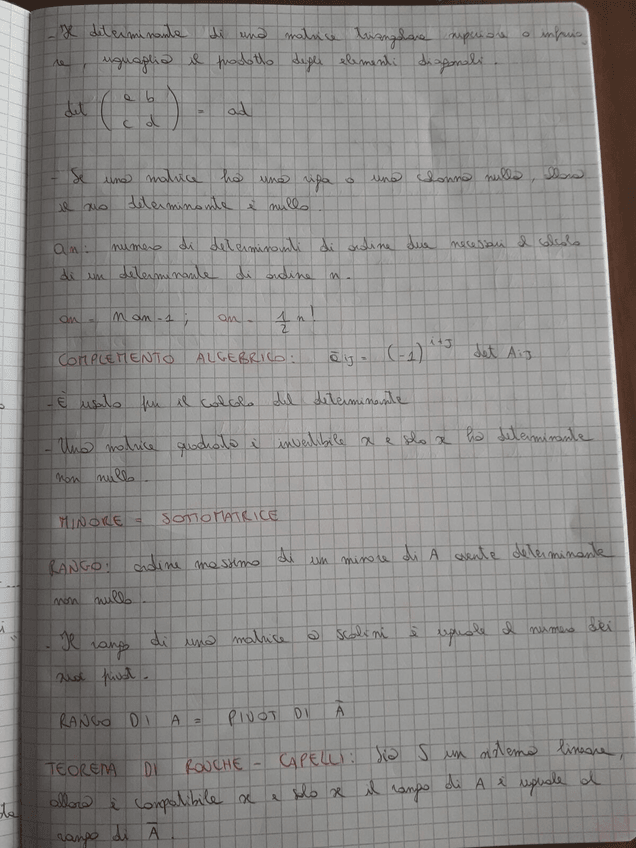 - Il determinante di una matrice triangolare superiore o inferio
re, uguaglia il prodotto degli elementi diagonali.
det ( a b
c d ) = ad
- Se una matrice ha una riga o una colonna nulla, allora
il suo determinante è nullo.
an: numero di determinanti di ordine due necessari al calcolo
di un determinante di ordine n.
an = n an-1; an = 1/2 n!
COMPLEMENTO ALGEBRICO: āij = (-1)^i+j det Aij
- È usato per il calcolo del determinante
- Una matrice quadrata è invertibile se e solo se ha determinante
non nullo.
MINORE = SOTTOMATRICE
RANGO: ordine massimo di un minore di A avente determinante
non nullo.
- Il rango di una matrice a scalini è uguale al numero dei
suoi pivot.
RANGO DI A = PIVOT DI Ā
TEOREMA DI ROUCHE - CAPELLI: sia S un sistema lineare,
allora è compatibile se e solo se il rango di A è uguale al
rango di Ā.